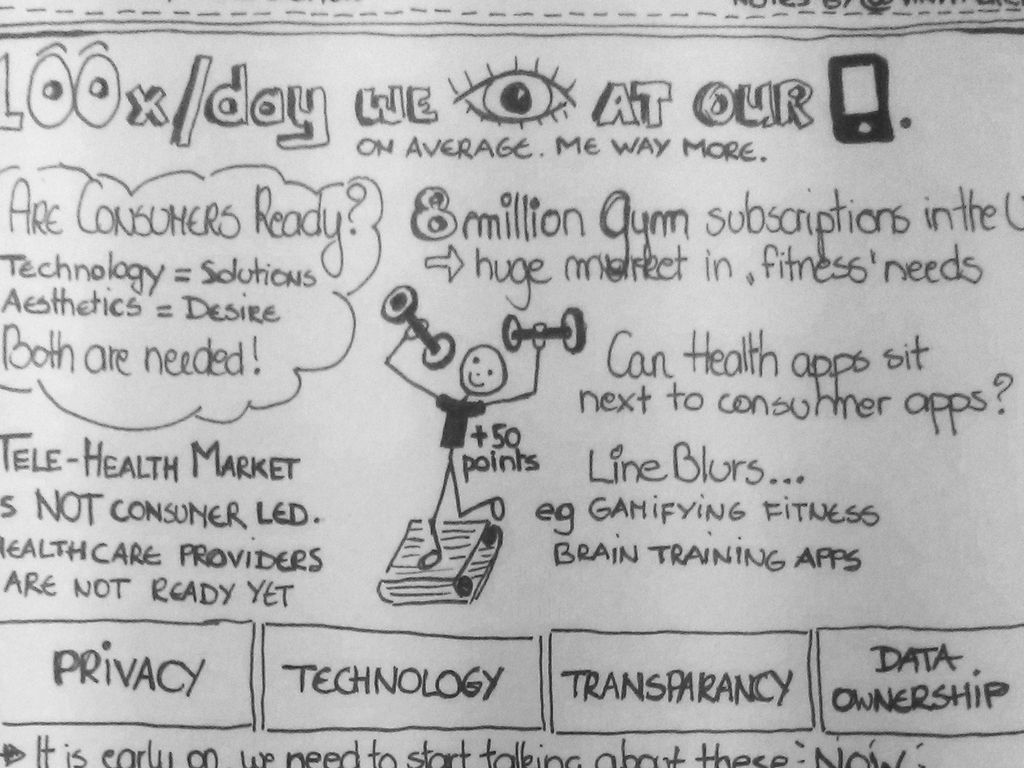 NOTES BY @
100x/day WE AT OUR .
ON AVERAGE. ME WAY MORE.
ARE CONSUMERS Ready?
Technology = Solutions
Aesthetics = Desire
Both are needed!
8 million Gym subscriptions in the U
⇒ huge market in 'fitness' needs
Can Health apps sit
next to consumer apps?
+50
points
TELE-HEALTH MARKET
S NOT CONSUMER LED.
HEALTHCARE PROVIDERS
ARE NOT READY YET
Line Blurs...
eg GAMIFYING FITNESS
BRAIN TRAINING APPS
PRIVACY
TECHNOLOGY
TRANSPARANCY
DATA
OWNERSHIP
→ It is early on, we need to start talking about these 'NOW'.